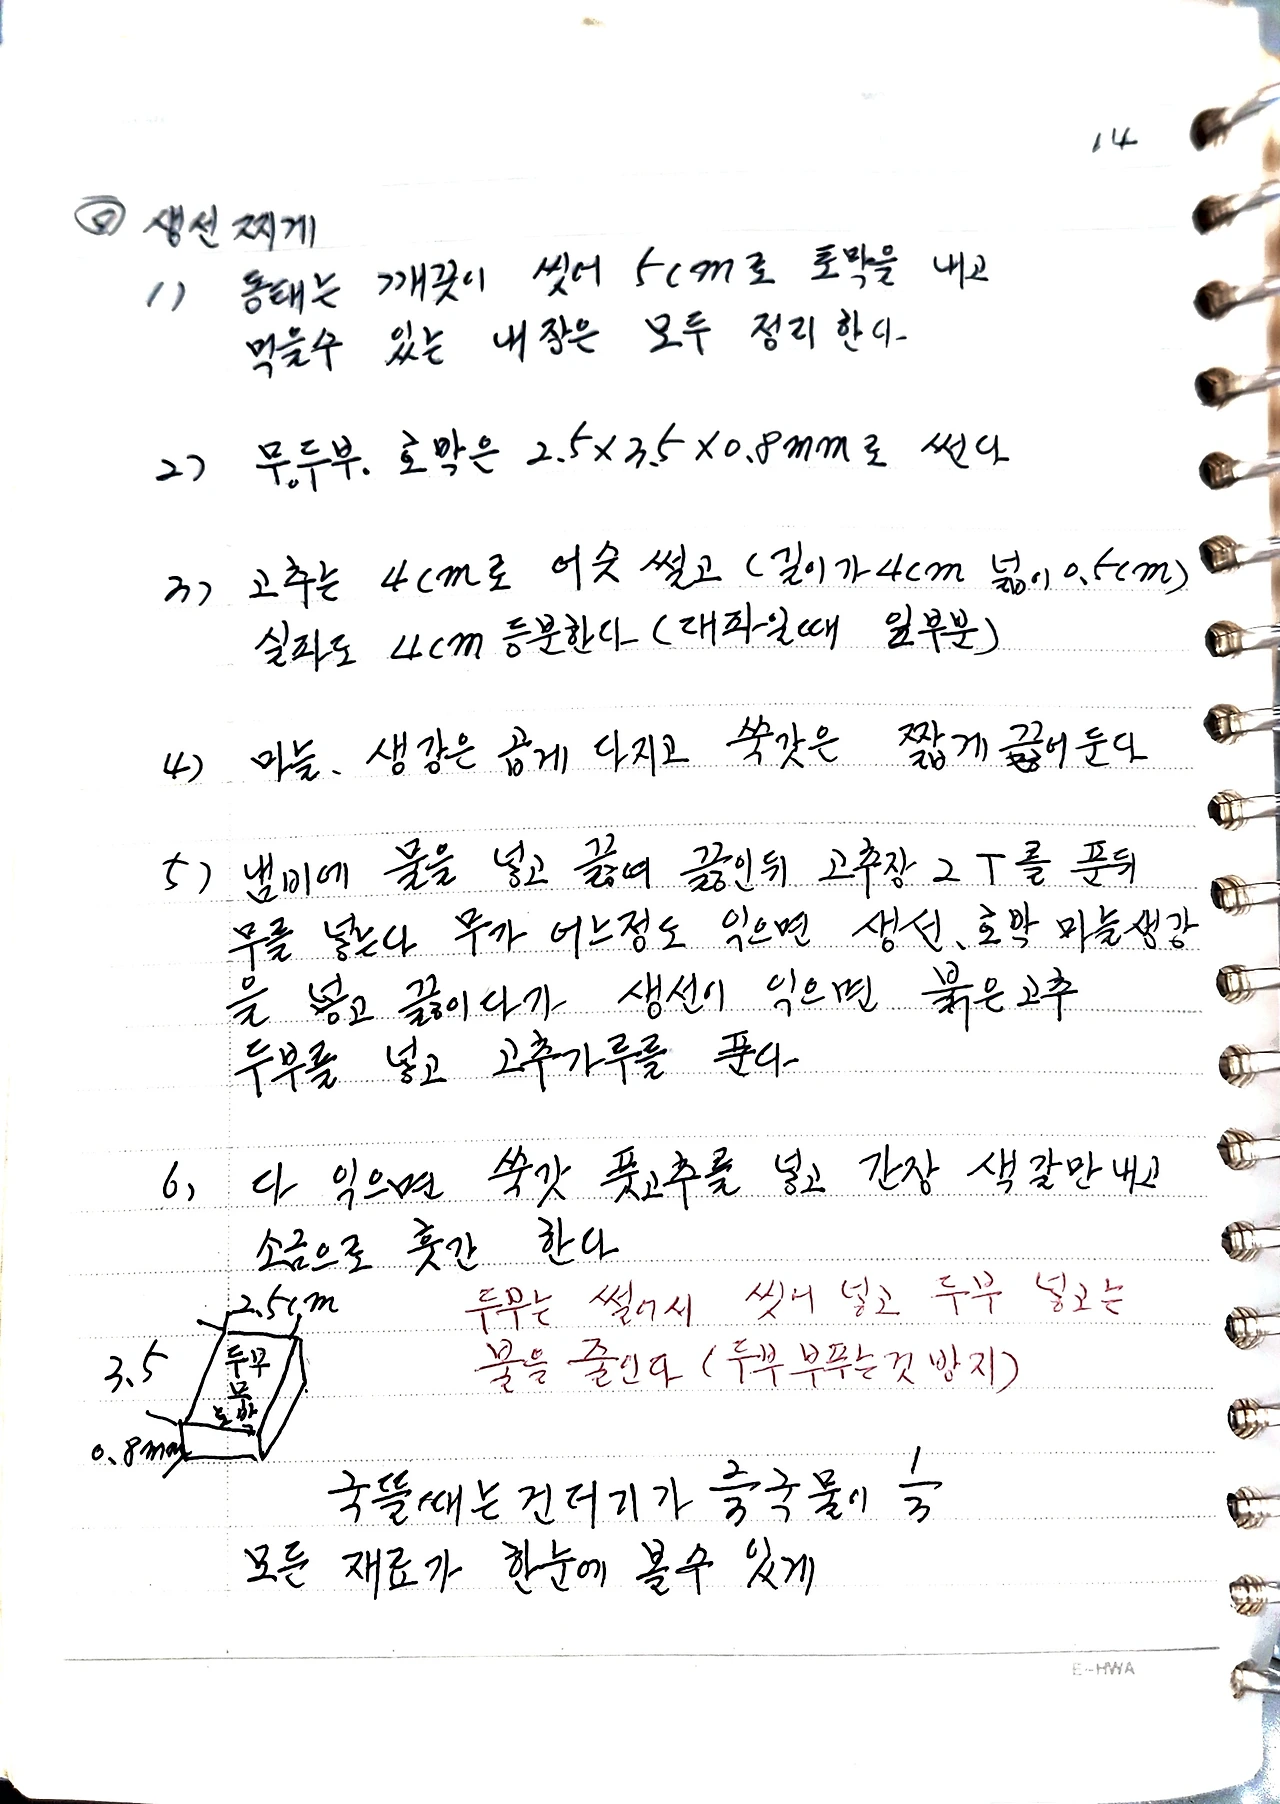 14
생선찌게
1) 동태는 깨끗이 씻어 5cm로 토막을 내고
먹을수 있는 내장은 모두 정리한다.
2) 무.두부. 호박은 2.5×3.5×0.8mm로 썬다
3) 고추는 4cm로 어슷 썰고 (길이가 4cm 넓이 0.5cm)
실파도 4cm 등분한다 (대파일때 잎부분)
4) 마늘、생강은 곱게 다지고 쑥갓은 짧게 끊어둔다
5) 냄비에 물을 넣고 끓여 끓인뒤 고추장 2T를 푼뒤
무를 넣는다 무가 어느정도 익으면 생선、호박 마늘생강
을 넣고 끓이다가 생선이 익으면 붉은고추
두부를 넣고 고추가루를 푼다.
6, 다 익으면 쑥갓 풋고추를 넣고 간장 색갈만내고
소금으로 훗간 한다
2.5cm
3.5
두부
무
호박
0.8mm
두부는 썰어서 씻어 넣고 두부 넣고는
불을 줄인다 (두부 부푸는것 방지)
국뜰때는 건더기가 2/3 국물이 1/3
모든 재료가 한눈에 볼수 있게
E-HWA